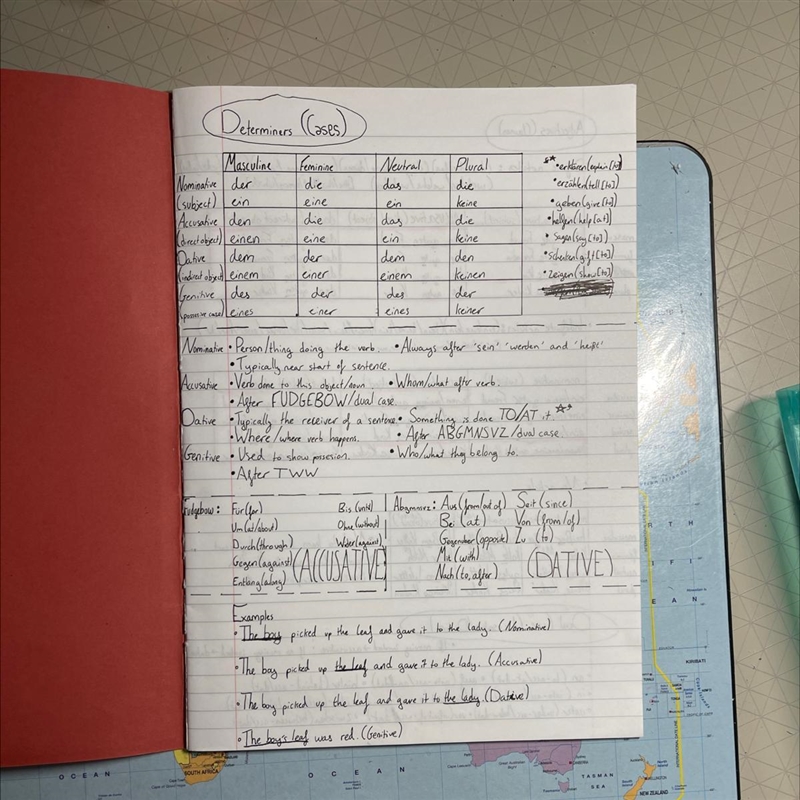 Determiners (Cases)
Masculine Feminine Neutral Plural
Nominative der die das die
(subject) ein eine ein keine
Accusative den die das die
(direct object) einen eine ein keine
Dative dem der dem den
(indirect object) einem einer einem keinen
Genitive des der des der
(possessive case) eines einer eines keiner
• erklären (explain [to])
• erzählen (tell [to])
• geben (give [to])
• helfen (help [at])
• sagen (say [to])
• schenken (gift [to])
• zeigen (show [to])
Nominative • Person/thing doing the verb. • Always after 'sein' 'werden' and 'heißt'
• Typically near start of sentence.
Accusative • Verb done to this object/noun. • Whom/what after verb.
• After FUDGEBOW/dual case.
Dative • Typically the receiver of a sentence • Something is done TO/AT it.
• Where/where verb happens. • After ABGMNSVZ/dual case.
Genitive • Used to show possesion. • Who/what they belong to.
• After TWW
Fudgebow: Für (for) Bis (until)
Um (at/about) Ohne (without)
Durch (through) Wider (against)
Gegen (against) (ACCUSATIVE)
Entlang (along)
Abgmnsvz: Aus (from/out of) Seit (since)
Bei (at) Von (from/of)
Gegenüber (opposite) Zu (to)
Mit (with) (DATIVE)
Nach (to, after)
Examples
• The boy picked up the leaf and gave it to the lady. (Nominative)
• The boy picked up the leaf and gave it to the lady. (Accusative)
• The boy picked up the leaf and gave it to the lady. (Dative)
• The boy's leaf was red. (Genitive)
KIRIBATI
OCEAN
SOUTH AFRICA
OCEAN
TASMAN
SEA
WELLINGTON
NEW ZEALAND